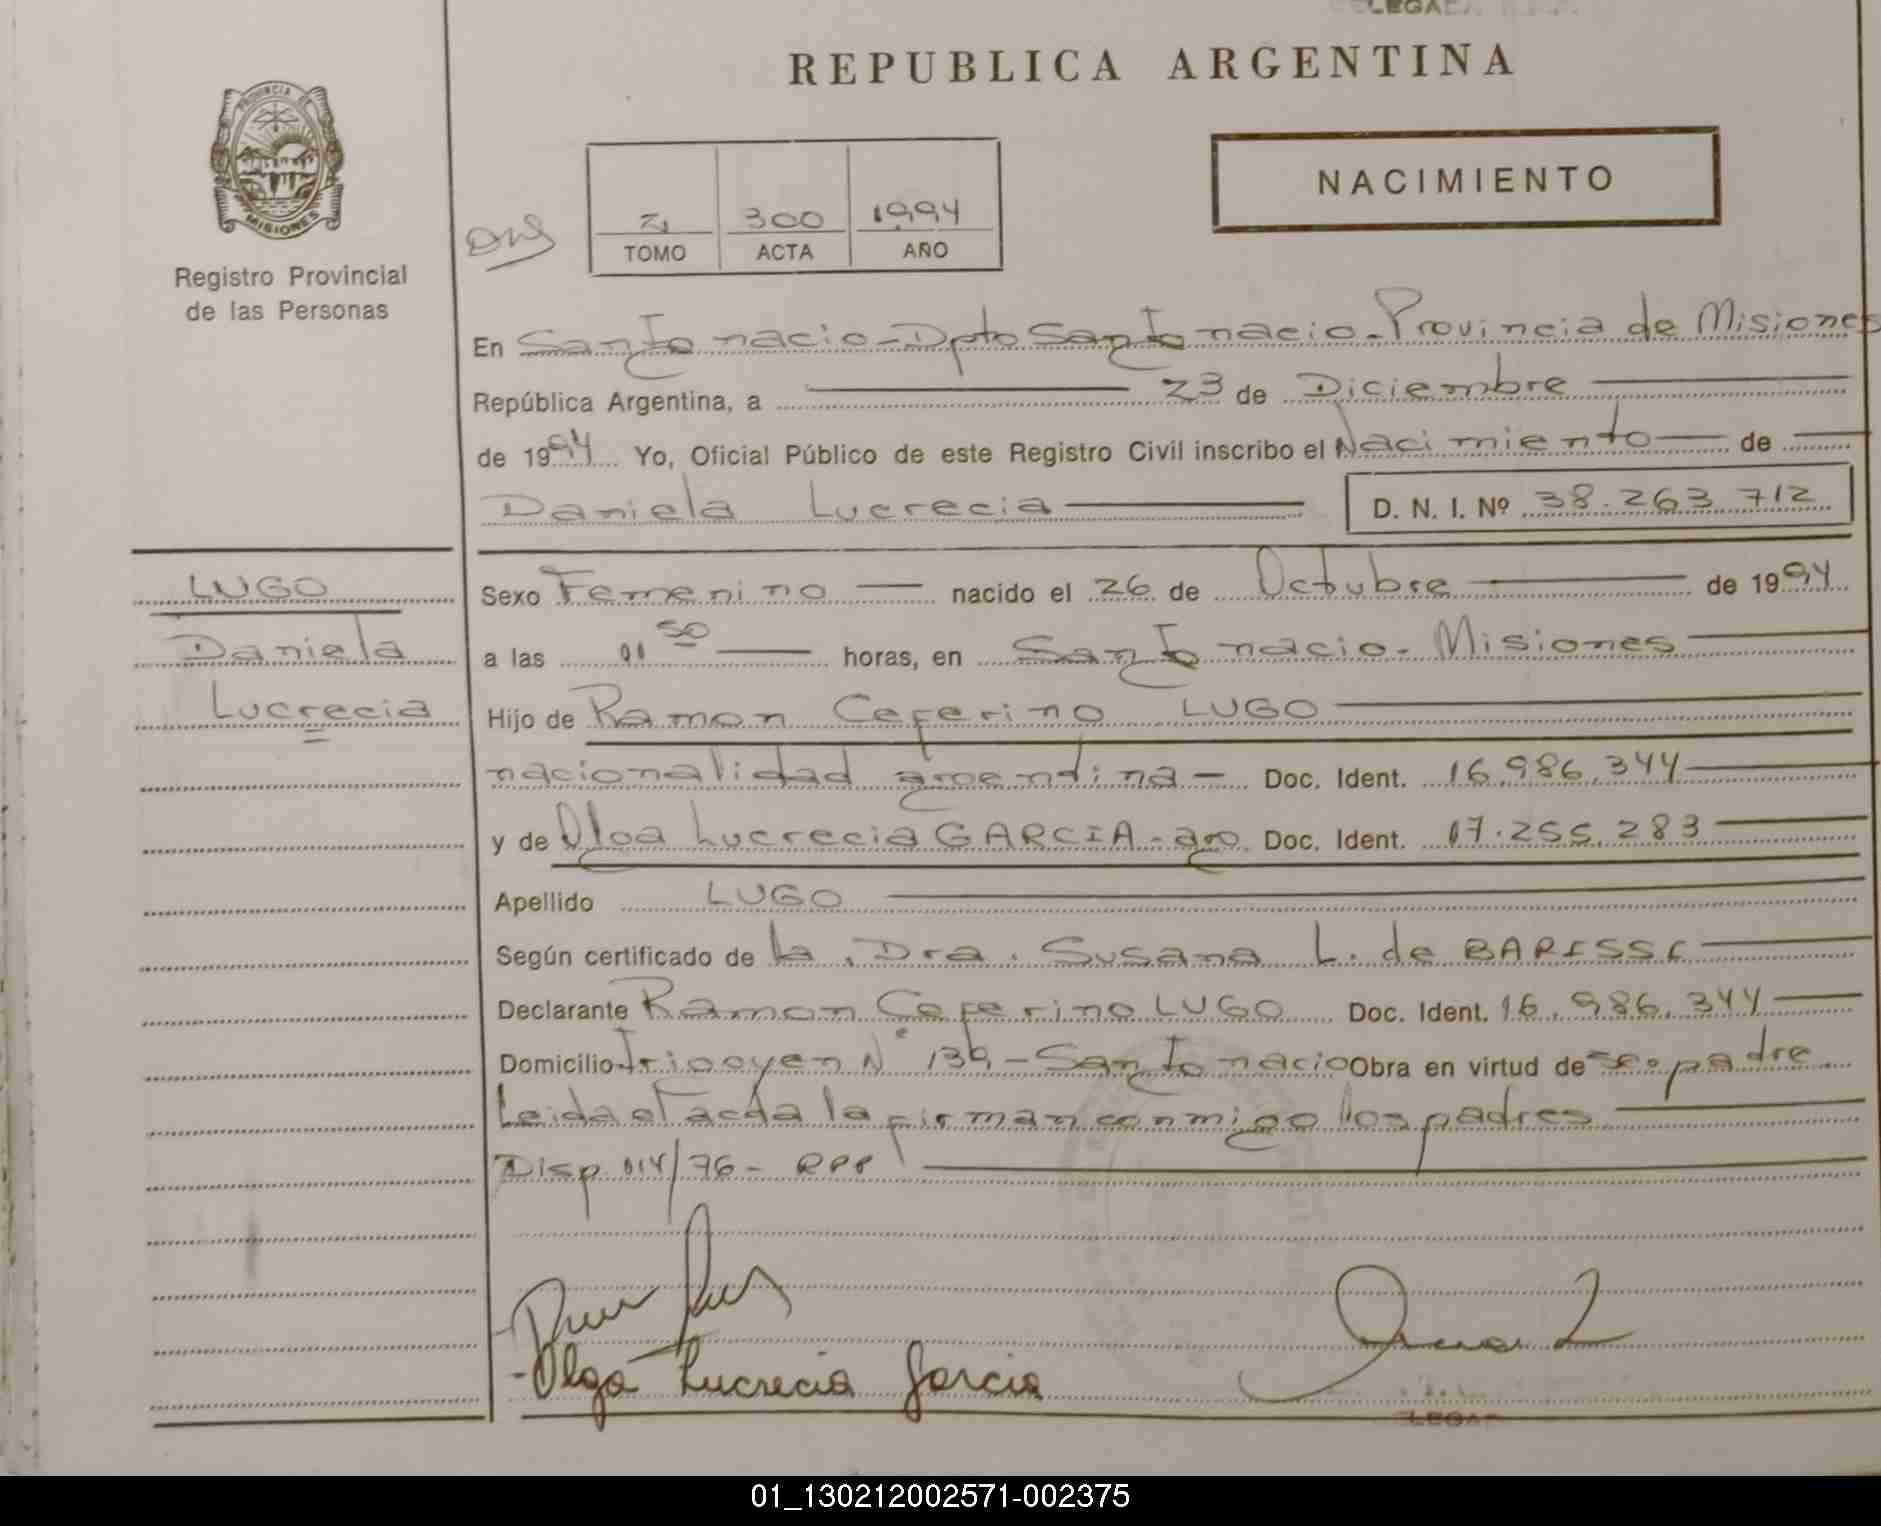 REPUBLICA ARGENTINA
PROVINCIA DE
MISIONES
Registro Provincial
de las Personas
NACIMIENTO
300 1994
TOMO ACTA AÑO
En San Ignacio - Dpto San Ignacio - Provincia de Misiones
República Argentina, a 23 de Diciembre
de 1994 Yo, Oficial Público de este Registro Civil inscribo el Nacimiento de
Daniela Lucrecia D. N. I. Nº 38.263.712
LUGO
Daniela
Lucrecia
Sexo Femenino nacido el 26 de Octubre de 1994
a las 01 50 horas, en San Ignacio - Misiones
Hijo de Ramon Ceferino LUGO
nacionalidad argentina - Doc. Ident. 16.986.344
y de Olga Lucrecia GARCIA - arg. Doc. Ident. 17.255.283
Apellido LUGO
Según certificado de la Dra. Susana L. de
Declarante Ramon Ceferino LUGO Doc. Ident. 16.986.344
Domicilio Irigoyen Nº - San Ignacio Obra en virtud de padre
Leida el acta la firman conmigo los padres
Disp. 014/76 - RPP
Olga Lucrecia Garcia
01_130212002571-002375